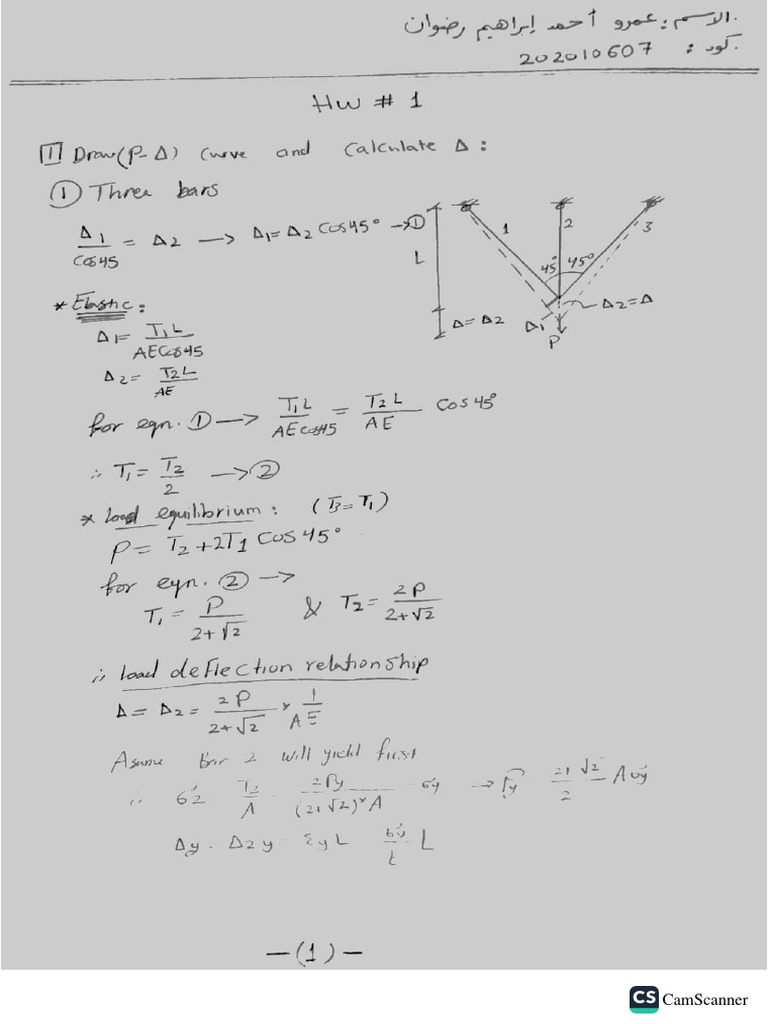 الاسم : عمرو أحمد إبراهيم رضوان
كود : 202010607
HW # 1
1 Draw (P-Δ) curve and calculate Δ :
① Three bars
Δ1/Cos45 = Δ2 → Δ1 = Δ2 Cos45° → ①
L
1 2 3
45° 45°
Δ = Δ2
Δ1
Δ2 = Δ
P
* Elastic :
Δ1 = T1L/AECos45
Δ2 = T2L/AE
for eqn. ① → T1L/AEcos45 = T2L/AE Cos45°
∴ T1 = T2/2 → ②
* Load equilibrium : (T3 = T1)
P = T2 + 2T1 Cos45°
for eqn. ② →
T1 = P/2+√2 & T2 = 2P/2+√2
∴ load deflection relationship
Δ = Δ2 = 2P/2+√2 × 1/AE
Asume Bar 2 will yield first
∴ σ2 T2/A 2Py/(2+√2)*A σy → Py 2+√2/2 Aσy
Δy . Δ2y . εy L σy/E L
-(1)-
CS CamScanner